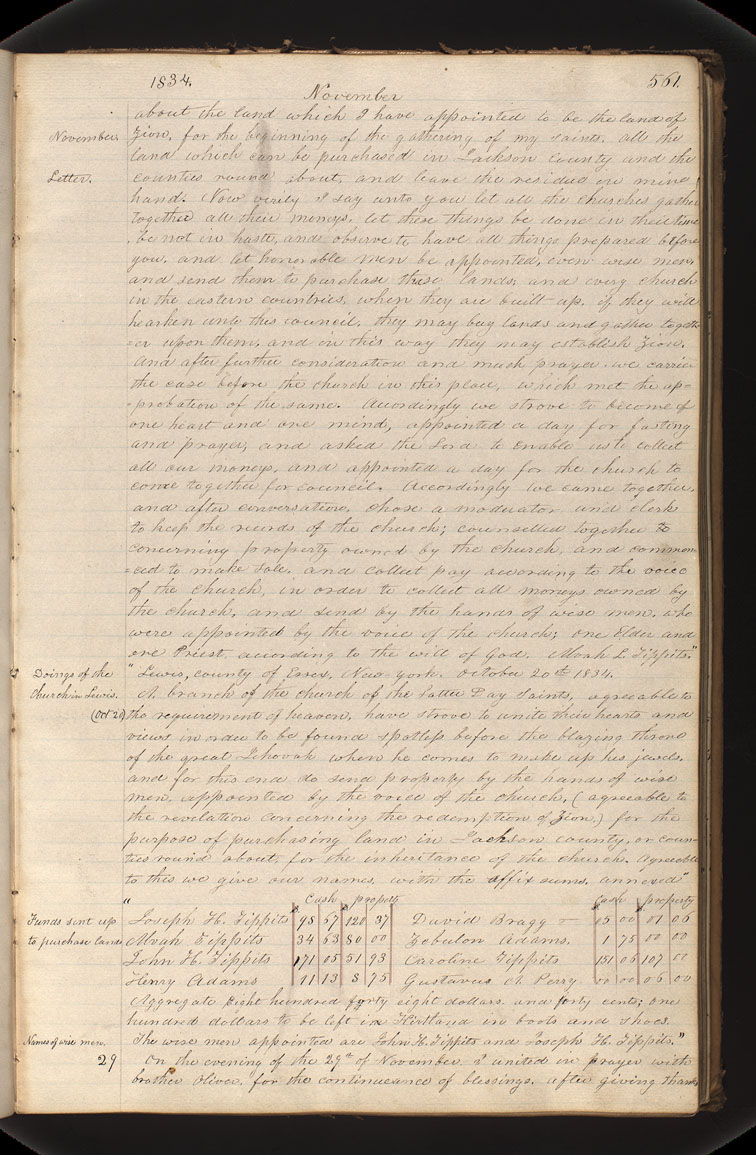 1834. 561.
November
about the land which I have appointed to be the land of
November. Zion, for the beginning of the gathering of my saints. all the
land which can be purchased in Jackson county and the
Letter. counties round about, and leave the residue in mine
hand. Now verily I say unto you let all the churches gather
together all their moneys. let these things be done in their time,
be not in haste, and observe to have all things prepared before
you. and let honorable men be appointed, even wise men,
and send them to purchase these lands, and every church
in the eastern countries, when they are built up, if they will
hearken unto this council, they may buy lands and gather togeth-
=er upon them, and in this way they may establish Zion.
And after further consideration and much prayer. we carried
the case before the church in this place, which met the ap-
=probation of the same. Acordingly we strove to become of
one heart and one mind, appointed a day for fasting
and prayer, and asked the Lord to enable us to collect
all our moneys, and appointed a day for the church to
come together for council. Accordingly we came together,
and after conversation, chose a moderator and clerk
to keep the records of the church; counselled together
concerning property owned by the church, and commen
=ced to make sale, and collect pay according to the voice
of the church, in order to collect all moneys owned by
the church, and send by the hands of wise men, who
were appointed by the voice of the church; one Elder and
one Priest, according to the will of God. Alvah L. Tippits."
Doings of the "Lewis, county of Essex, New York. October 20th 1834.
Church in Lewis. A branch of the church of the Latter Day Saints, agreeable to
(Oct 20) the requirement of heaven, have strove to unite their hearts and
views in order to be found spotless before the blazing throne
of the great Jehovah when he comes to make up his jewels.
and for this end do send property by the hands of wise
men, appointed by the voice of the church, (agreeable to
the revelation concerning the redemption of Zion,) for the
purpose of purchasing land in Jackson county, or coun-
ties round about, for the inheritance of the church. Agreeable
to this we give our names, with the affix sums. annexed"
" Cash property Cash property
Funds sent up Joseph H. Tippits 98 57 120 37 David Bragg 05 00 01 06
to purchase lands Alvah Tippits 34 53 80 00 Zebulon Adams. 1 75 00 00
John H. Tippits 171 05 51 93 Caroline Tippits 151 06 107 00
Henry Adams 11 13 8 75 Gustavus A Perry 00 00 06 00
Aggregate Eight hundred forty eight dollars. and forty cents; one
hundred dollars to be left in Kirtland in boots and shoes.
Names of wise men. The wise men appointed are John H. Tippits and Joseph H. Tippits."
29 On the evening of the 29th of November I united in prayer with
brother Oliver. for the continueance of blessings. after giving thanks